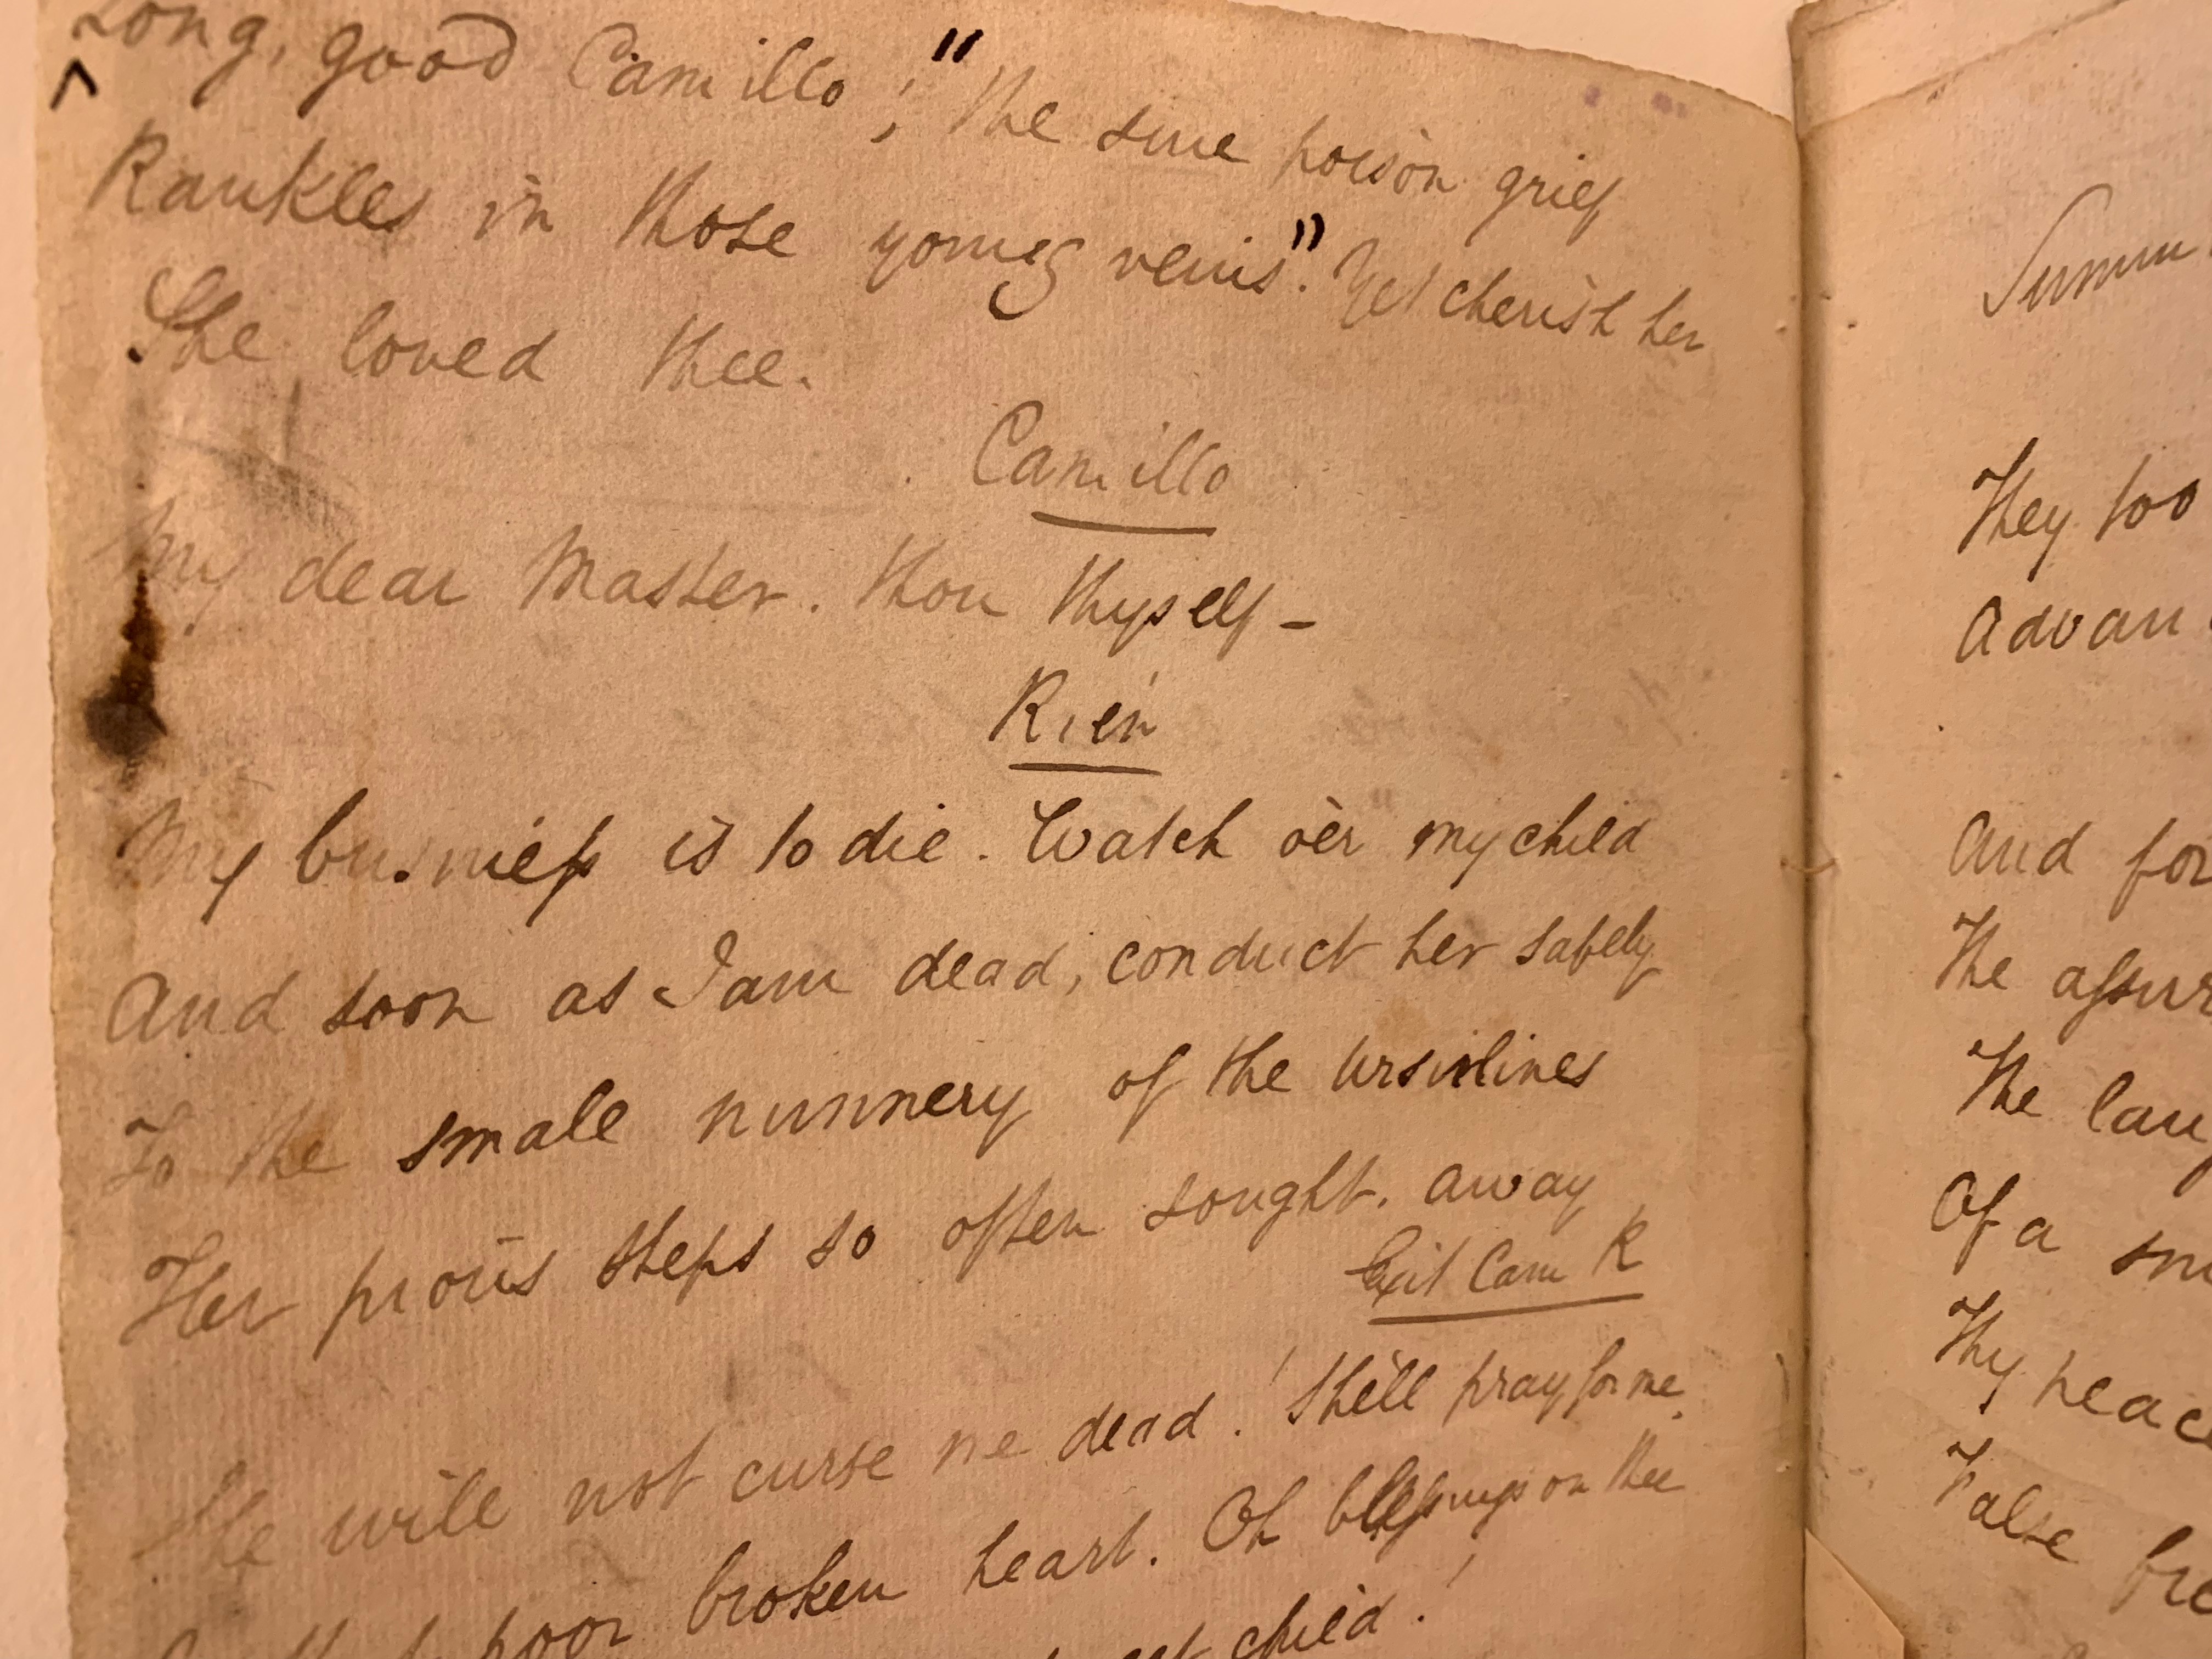 long, good Camillo; "the sure poison grief
^
Rankles in those young veins". Yet cherish her
She loved thee.
Camillo
My dear Master. Thou thyself –
Rien
My business is to die. Watch o'er my child
And soon as I am dead, conduct her safely
To the small nunnery of the Ursulines
Her pious steps so often sought. Away
Exit Cam R
She will not curse me dead! She'll pray for me.
poor broken heart. Oh blessings on thee
child!
Summ
They too
Advan
And for
The assur
The lan
Of a sm
Thy peac
False fre